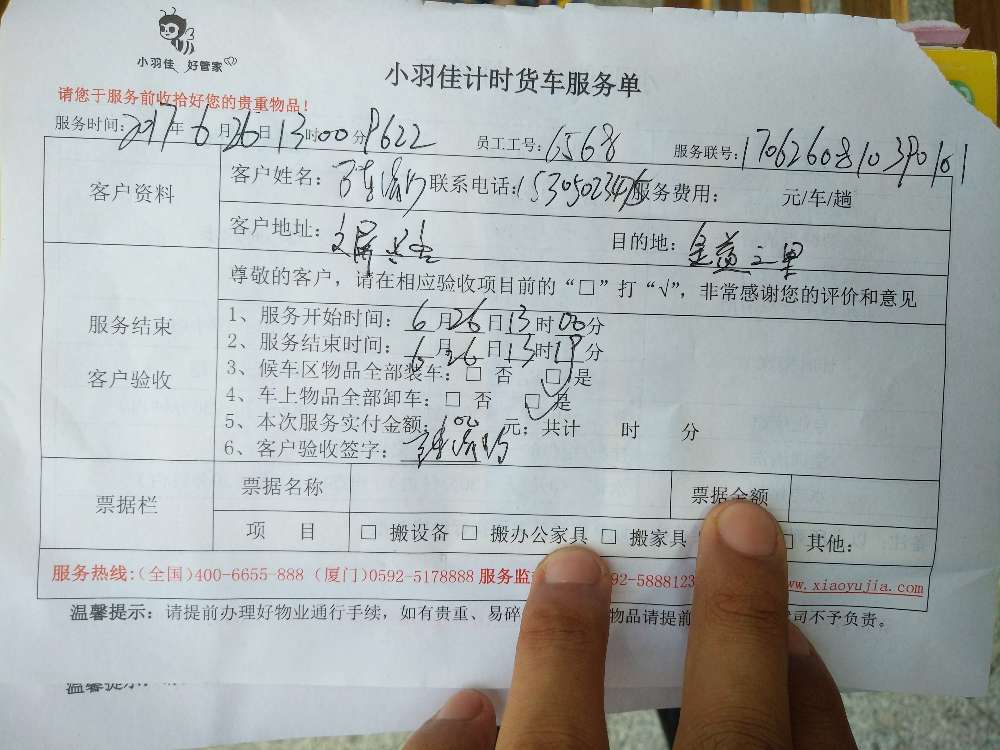 小羽佳 好管家
小羽佳计时货车服务单
请您于服务前收拾好您的贵重物品！
服务时间：2017年6月26日13时00分 P622 员工工号：6568 服务联号：17062608103P0101
客户资料 客户姓名： 联系电话： 服务费用： 元/车/趟
客户地址： 目的地：金益之里
尊敬的客户，请在相应验收项目前的“□”打“√”，非常感谢您的评价和意见
服务结束
客户验收
1、服务开始时间：6月26日13时00分
2、服务结束时间：6月26日13时19分
3、候车区物品全部装车：□ 否 □ 是
4、车上物品全部卸车：□ 否 □ 是
5、本次服务实付金额：100元；共计 时 分
6、客户验收签字：
票据栏 票据名称 票据金额
项 目 □ 搬设备 □ 搬办公家具 □ 搬家具 □ 其他：
服务热线：(全国)400-6655-888 (厦门)0592-5178888 服务监 92-5888123 www.xiaoyujia.com
温馨提示：请提前办理好物业通行手续，如有贵重、易碎 物品请提前 司不予负责。
温馨提示：